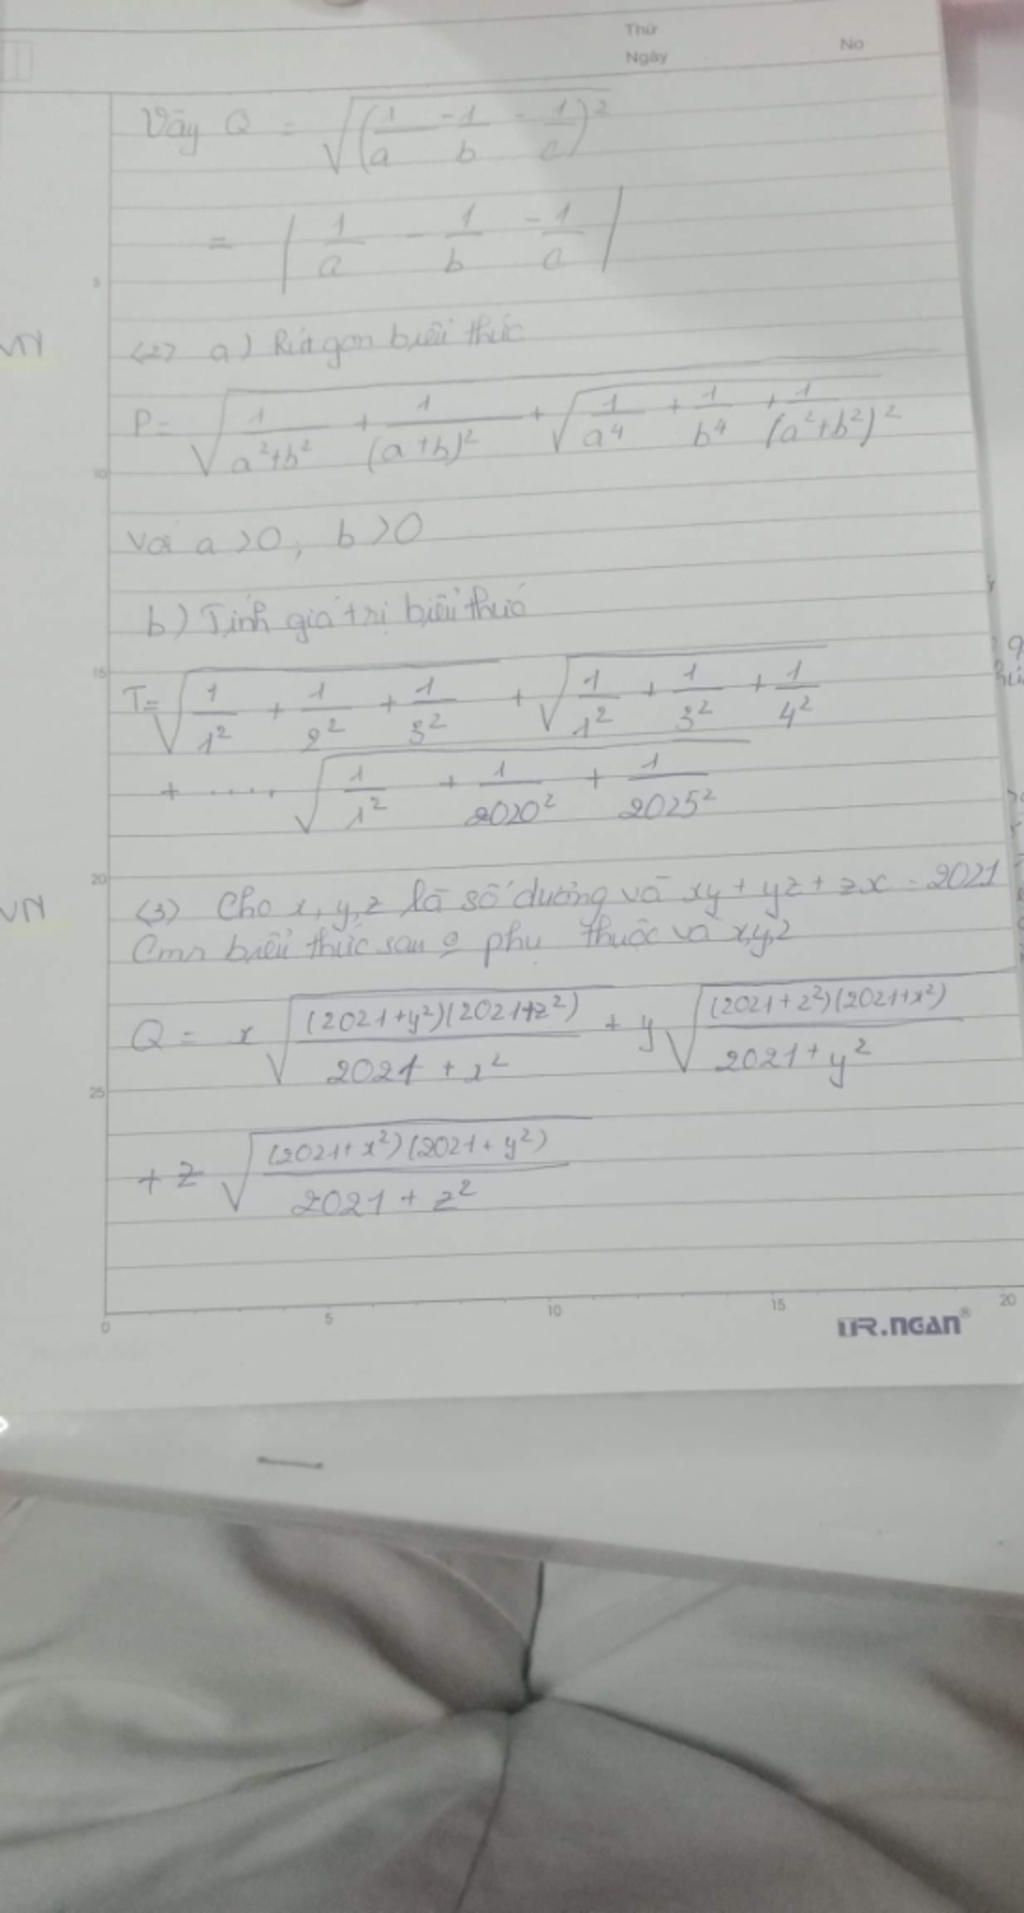 Thứ
Ngày No
Vậy Q = √(1/a - 1/b - 1/c)²
= | 1/a - 1/b - 1/c |
VN <2> a) Rút gọn biểu thức
P = √(1/(a²+b²) + 1/(a+b)² + √(1/a⁴ + 1/b⁴ + 1/(a²+b²)²))
Với a >0, b >0
b) Tính giá trị biểu thức
T = √(1/1² + 1/2² + 1/3²) + √(1/1² + 1/3² + 1/4²)
+ ..... √(1/1² + 1/2020² + 1/2025²)
VN <3> Cho x, y, z là số dương và xy + yz + zx = 2021
Cmr biểu thức sau phụ thuộc và x,y,z
Q = x √((2021+y²)(2021+z²)/(2021 + x²)) + y √((2021+z²)(2021+x²)/(2021+y²))
+ z √((2021+x²)(2021+y²)/(2021 + z²))
5
10
15
20
25
0 5 10 15 20
UR.NGAN®